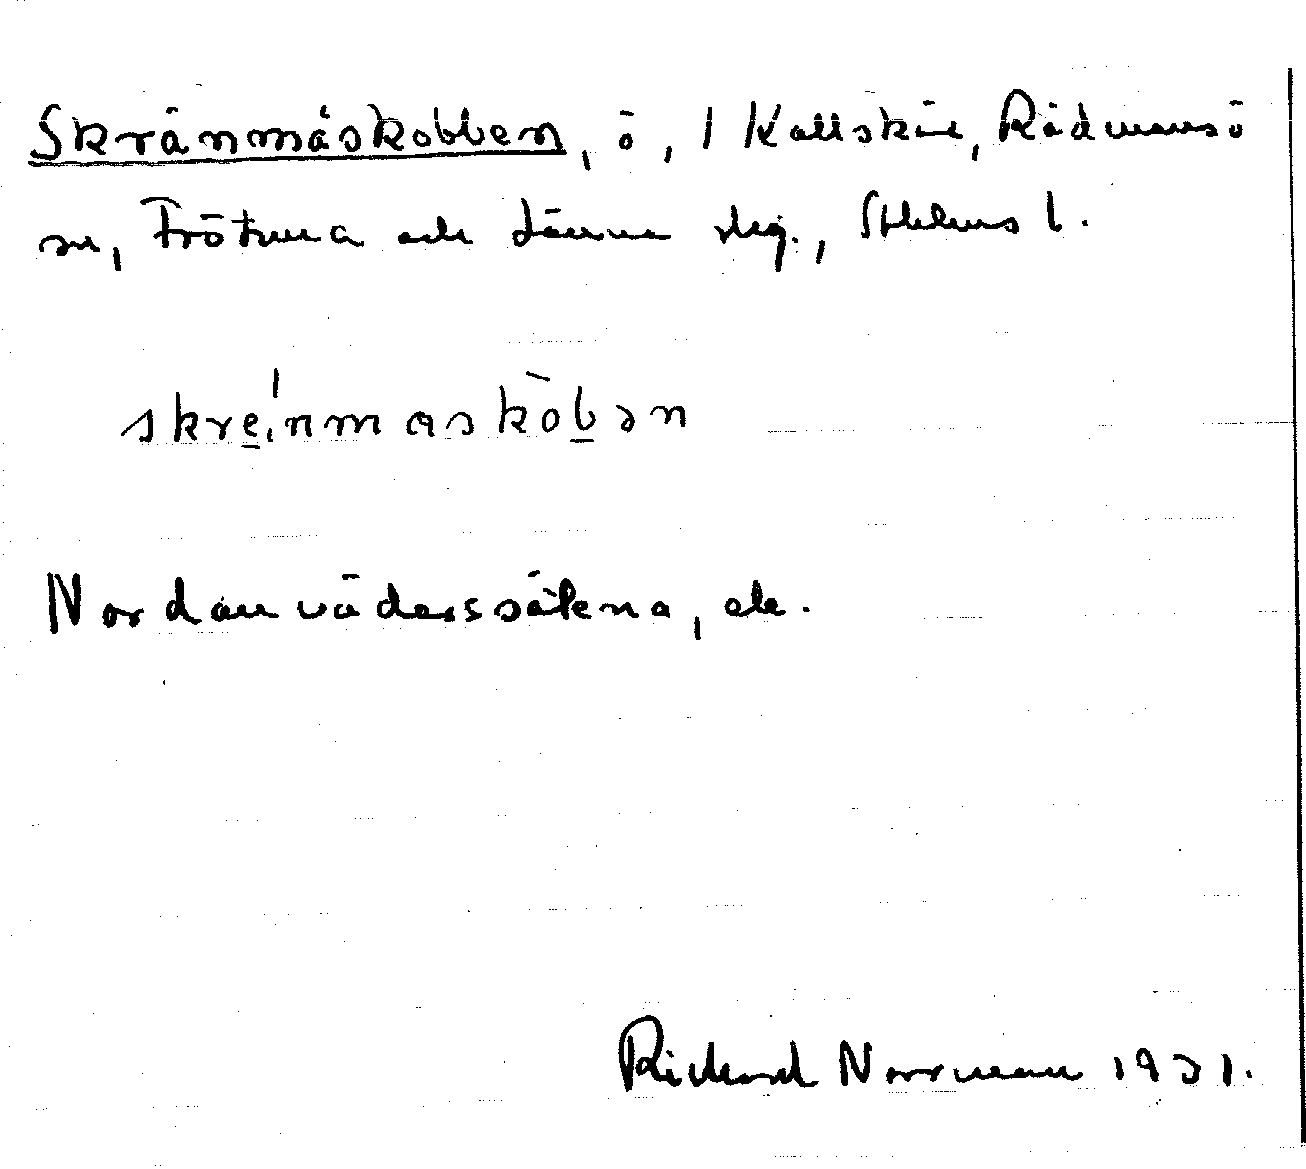 Skränmåskobben, ö, I Kallskär, Rådmansö
sn, Frötuna och Länna skg., Sthlms l.
skre̠'nmaskòb̠ən
Nordanväderssätena, etc.
Rickard Norrman 1931.